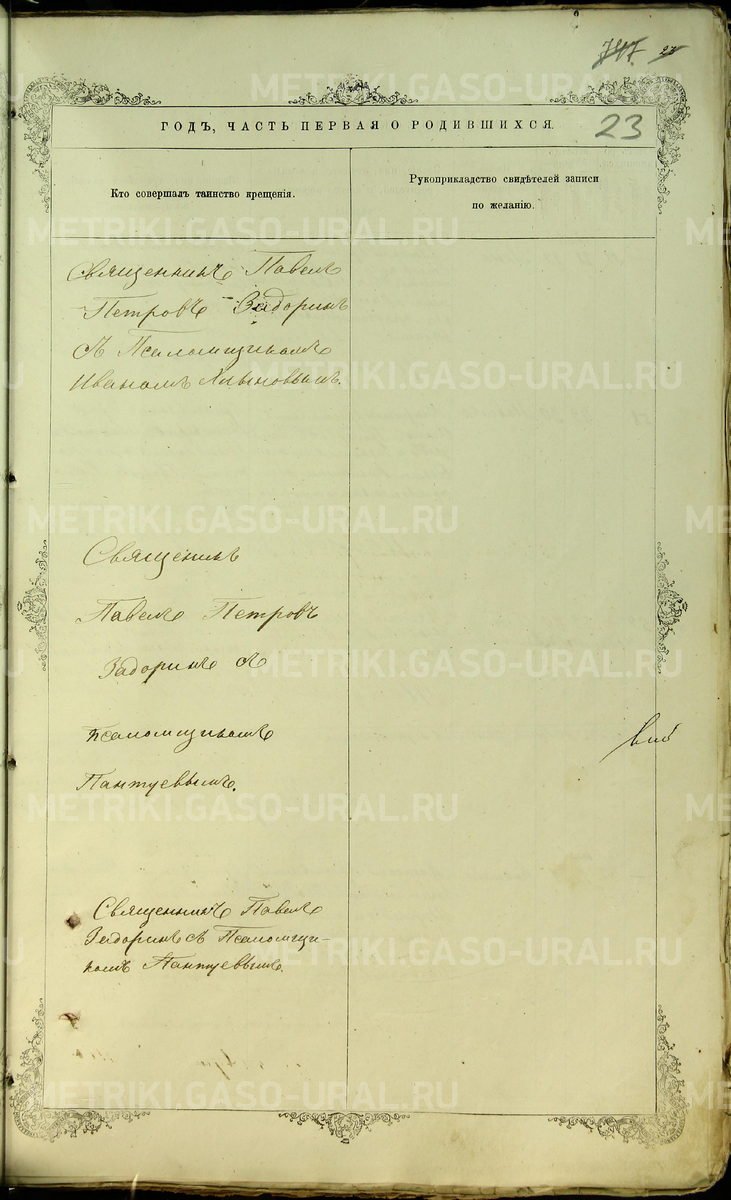 747. 27
23
ГОДЪ, ЧАСТЬ ПЕРВАЯ О РОДИВШИХСЯ.
Кто совершалъ таинство крещенія.
Рукоприкладство свидѣтелей записи
по желанію.
Священникъ Павелъ
Петровъ Задоринъ
съ Псаломщикомъ
Иваномъ Клыковымъ.
Священикъ
Павелъ Петровъ
Задоринъ съ
псаломщикомъ
Пантуевымъ.
Священникъ Павелъ
Задоринъ съ Псаломщи-
комъ Пантуевымъ.
METRIKI.GASO-URAL.RU